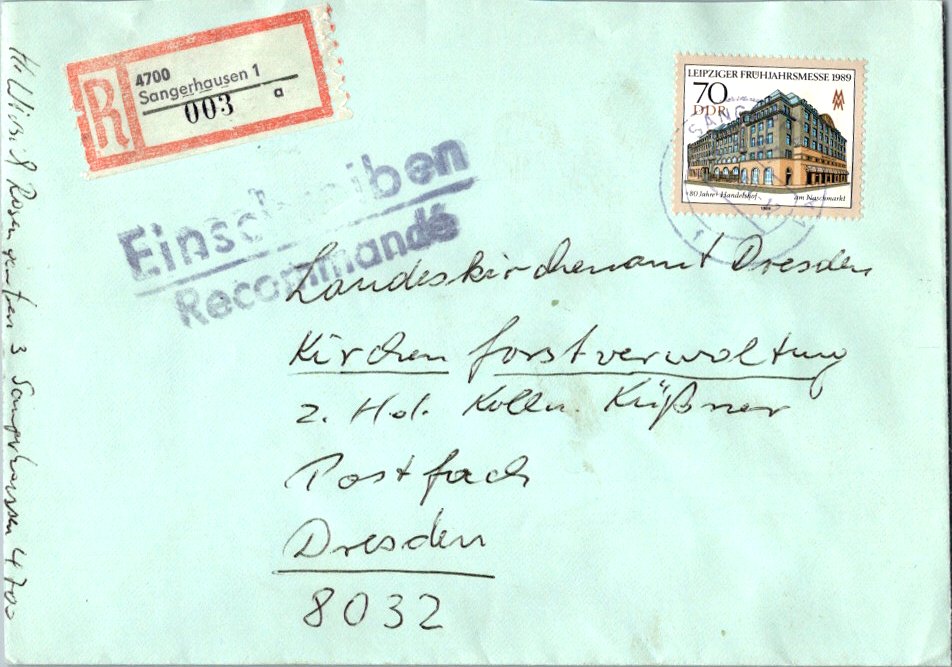 R
4700
Sangerhausen 1
003 a
LEIPZIGER FRÜHJAHRSMESSE 1989
70
DDR
MM
80 Jahre Handelshof
am Naschmarkt
SANG
Einschreiben
Recommandé
Landeskirchenamt Dresden
Kirchenforstverwaltung
z. Hd. Kolln. Küßner
Postfach
Dresden
8032
Rosengarten 3 Sangerhausen 4700